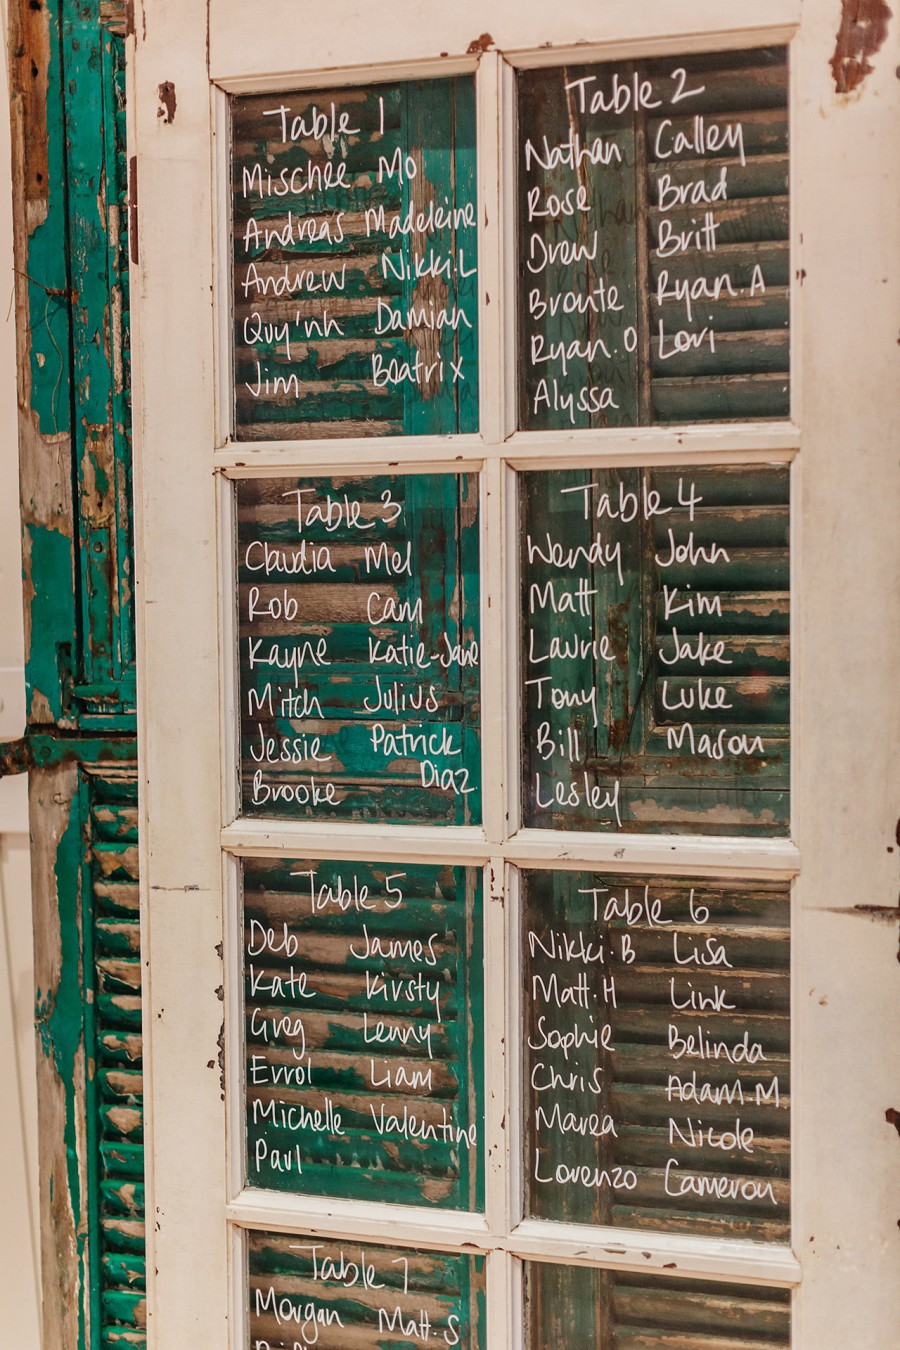 Table 1
Mischee Mo
Andreas Madeleine
Andrew Nikki.L
Quy'nh Damian
Jim Beatrix
Table 2
Nathan Calley
Rose Brad
Drew Britt
Bronte Ryan.A
Ryan.O Lori
Alyssa
Table 3
Claudia Mel
Rob Cam
Kayne Katie-Jane
Mitch Julius
Jessie Patrick
Brooke Diaz
Table 4
Wendy John
Matt Kim
Laurie Jake
Tony Luke
Bill Mason
Lesley
Table 5
Deb James
Kate Kirsty
Greg Lenny
Errol Liam
Michelle Valentine
Paul
Table 6
Nikki.B Lisa
Matt.H Link
Sophie Belinda
Chris Adam.M
Marea Nicole
Lorenzo Cameron
Table 7
Morgan Matt.S